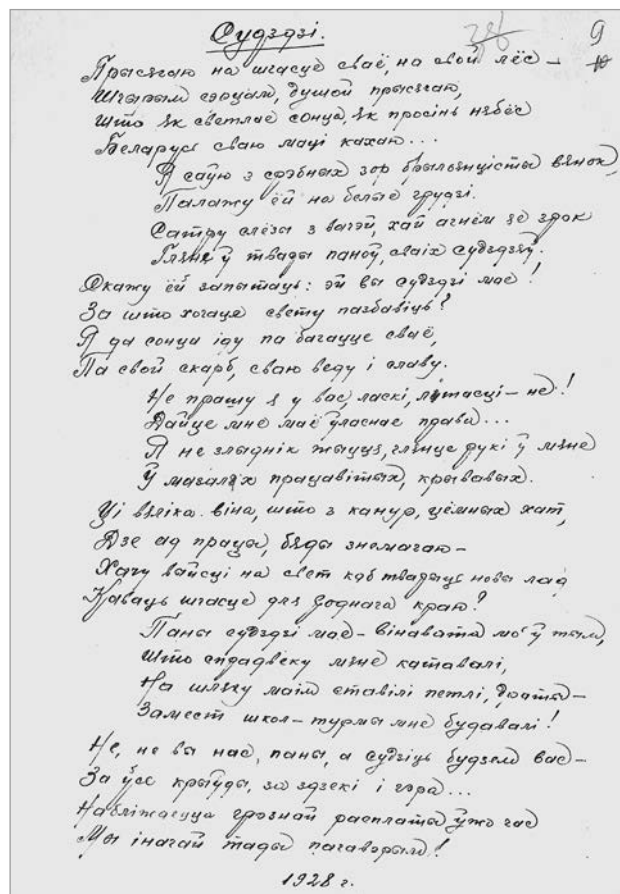 Судздзі.
386 9
10
Прысягаю на шчасце сваё, на свой лёс —
Шчырым сэрцам, душой прысягаю,
Што як светлае сонца, як просінь нябёс
Беларусь сваю маці кахаю...
Я саўю з срэбных зор брыльянцісты вянок,
Палажу ёй на белые грудзі.
Сатру слёзы з вачэй, хай агнём яе зрок
Гляне ў твады паноў, сваіх судздзяў.
Скажу ёй запытаць: эй вы судздзі мае!
За што хочаце свету пазбавіць?
Я да сонца іду па багацце сваё,
Па свой скарб, сваю веду і славу.
Не прашу я у вас, ласкі, літасці — не!
Дайце мне маё ўласнае права...
Я не злыднік жыцця, гляньце рукі ў мяне
Ў мазалёх працавітых, крывавых.
Ці вяліка віна, што з канур, цёмных хат,
Дзе ад працы, бяды знемагаю —
Хачу вайсці на свет каб тварыць новы лад
Каваць шчасце для роднага краю?
Паны судздзі мае — вінаваты мо' ў тым,
Што спрадвеку мяне катавалі,
На шляху маім ставілі петлі, драты —
Замест школ — турмы мне будавалі!
Не, не вы нас, паны, а судзіць будзем вас —
За ўсе крыўды, за здзекі і гора...
Набліжаецца грознай расплаты ўжо час
Мы іначай тады пагаворым!
1928 г.